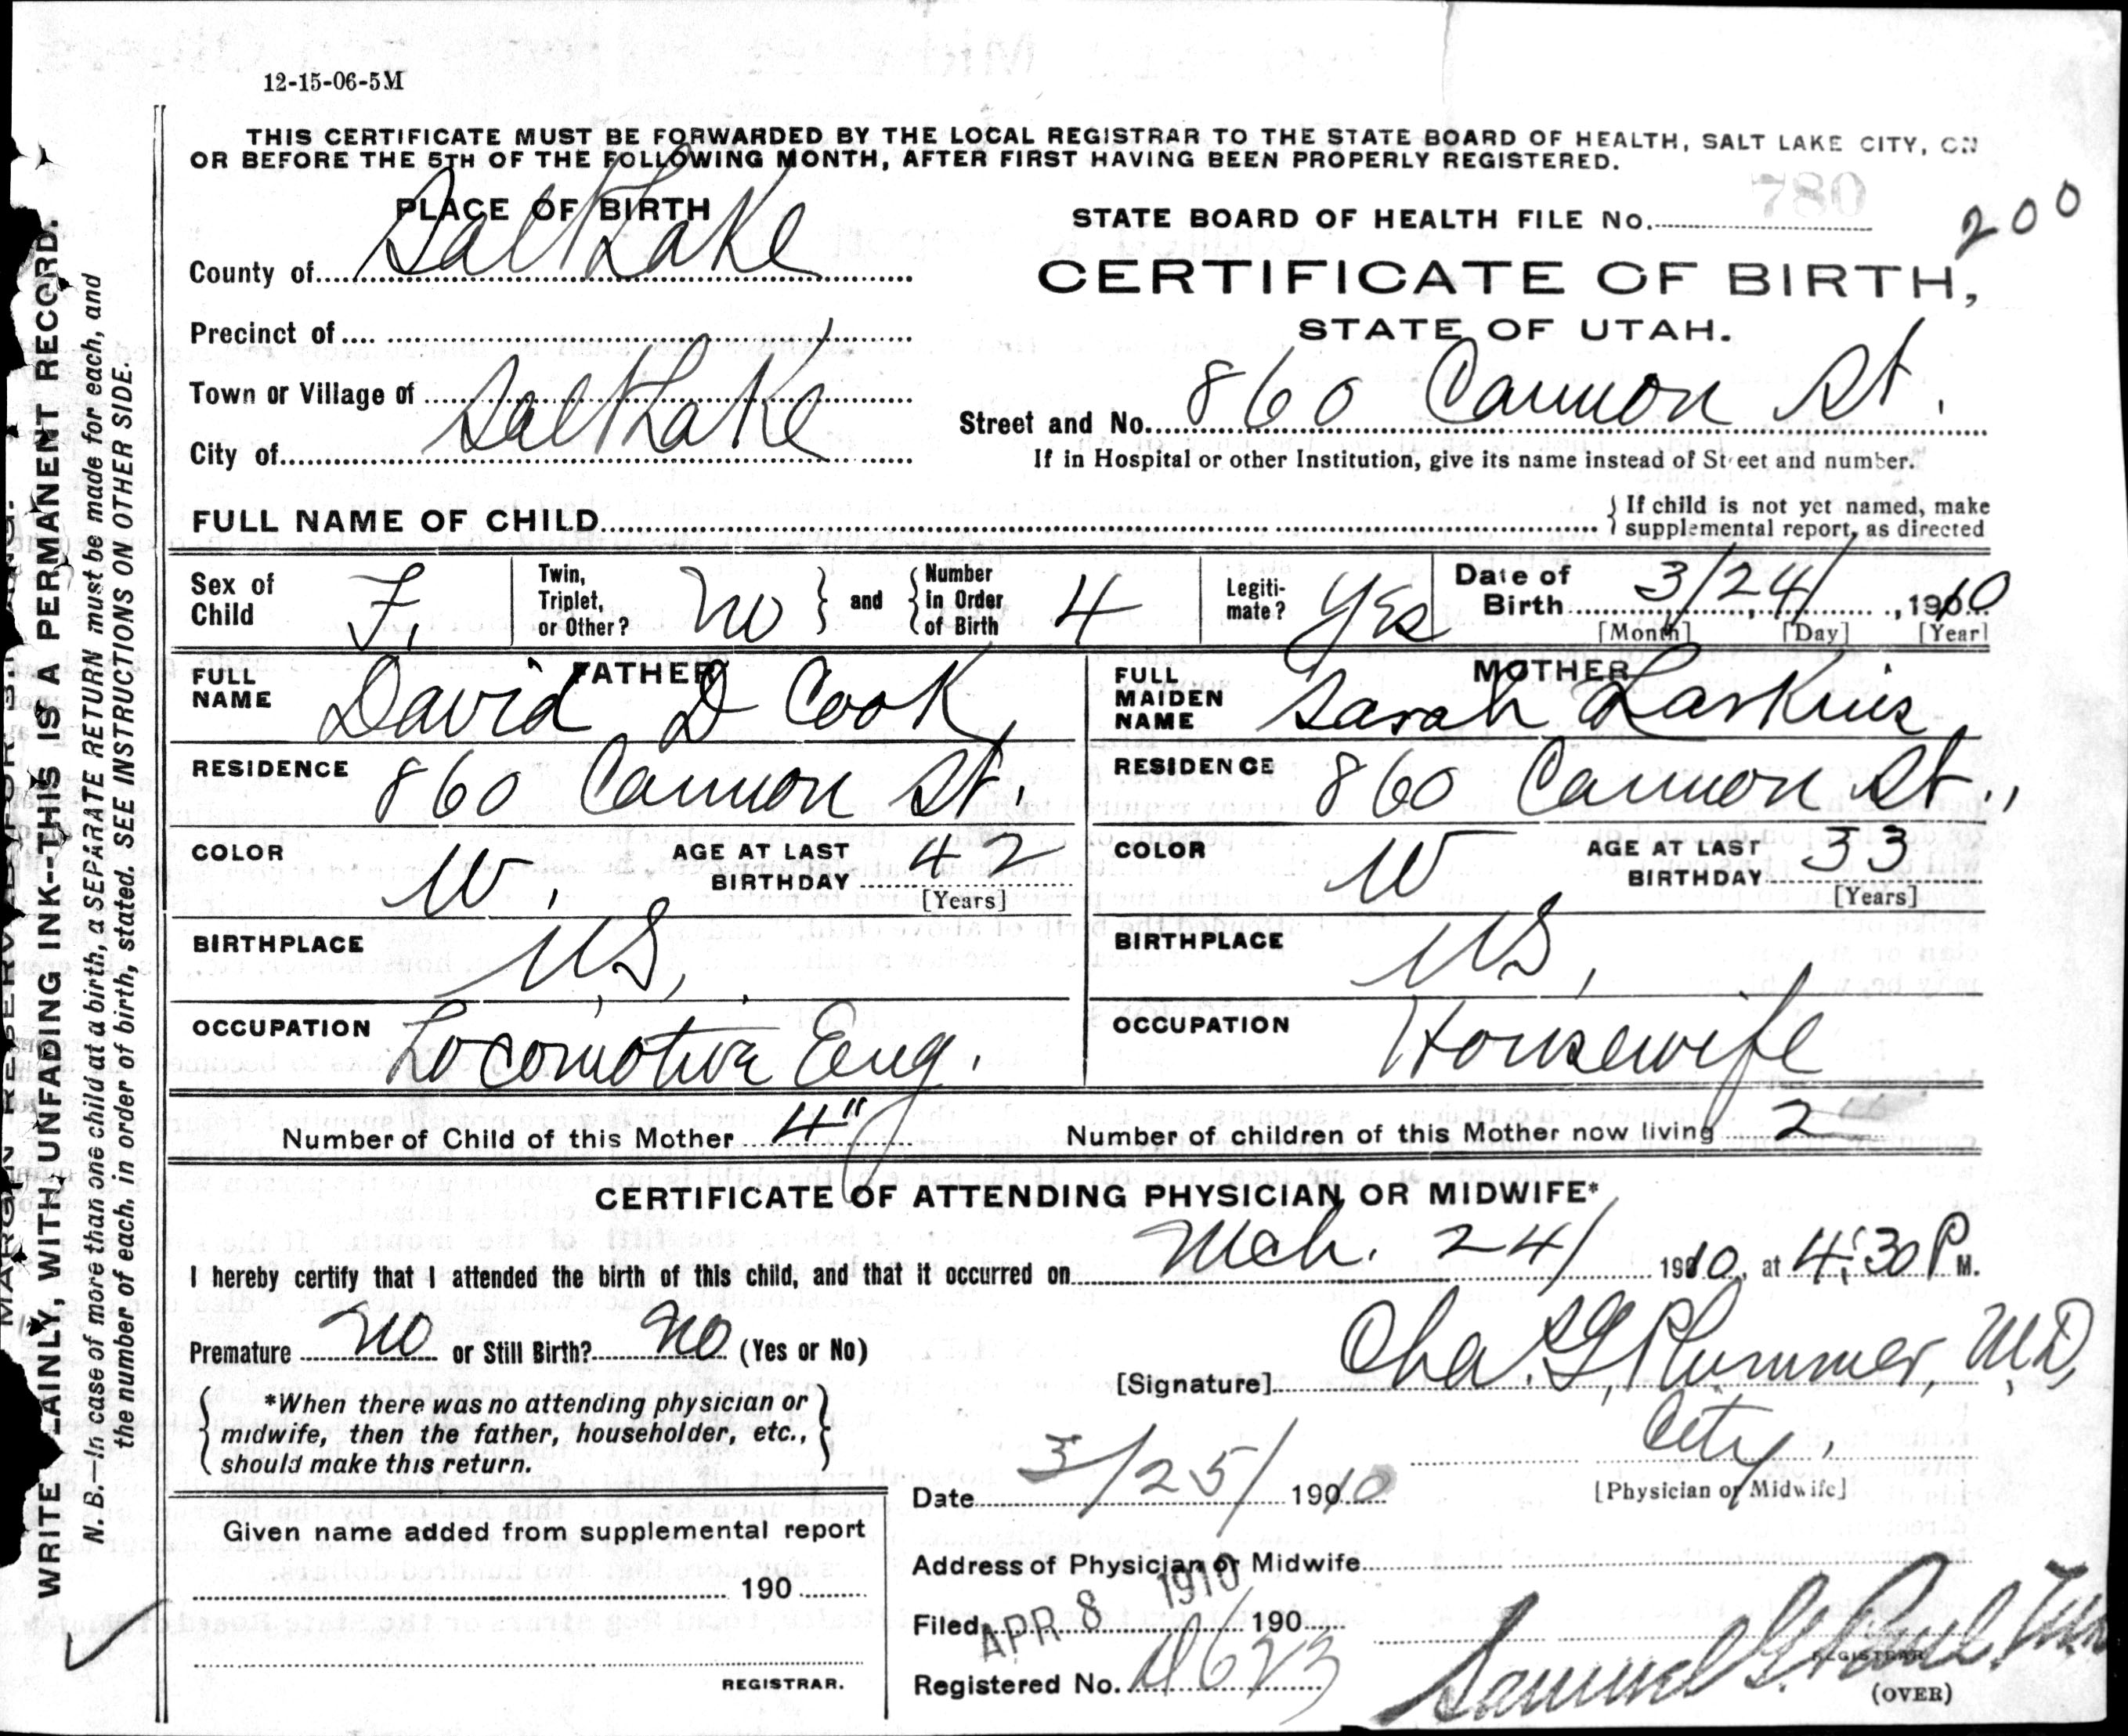 12-15-06-5M
THIS CERTIFICATE MUST BE FORWARDED BY THE LOCAL REGISTRAR TO THE STATE BOARD OF HEALTH, SALT LAKE CITY, ON
OR BEFORE THE 5TH OF THE FOLLOWING MONTH, AFTER FIRST HAVING BEEN PROPERLY REGISTERED.
PLACE OF BIRTH
County of Salt Lake
Precinct of
Town or Village of
City of Salt Lake
780
STATE BOARD OF HEALTH FILE No.
200
CERTIFICATE OF BIRTH,
STATE OF UTAH.
Street and No. 860 Cannon St.
If in Hospital or other Institution, give its name instead of Street and number.
FULL NAME OF CHILD
{ If child is not yet named, make
supplemental report, as directed
Sex of Child F.
Twin, Triplet, or Other? no } and { Number in Order of Birth 4
Legiti-mate? Yes
Date of Birth 3/24/, 1910
[Month] [Day] [Year]
FATHER
FULL NAME David D Cook,
RESIDENCE 860 Cannon St.
COLOR W. AGE AT LAST BIRTHDAY 42
[Years]
BIRTHPLACE US,
OCCUPATION Locomotive Eng.
MOTHER
FULL MAIDEN NAME Sarah Larkins
RESIDENCE 860 Cannon St.,
COLOR W AGE AT LAST BIRTHDAY 33
[Years]
BIRTHPLACE US,
OCCUPATION Housewife
Number of Child of this Mother 4"
Number of children of this Mother now living 2
CERTIFICATE OF ATTENDING PHYSICIAN OR MIDWIFE*
I hereby certify that I attended the birth of this child, and that it occurred on Mch. 24/ 1910, at 4:30 P M.
Premature no or Still Birth? no (Yes or No)
[Signature] Chas. G. Plummer, M.D,
City,
[Physician or Midwife]
{ *When there was no attending physician or
midwife, then the father, householder, etc.,
should make this return. }
Date 3/25/ 1910
Given name added from supplemental report
190
REGISTRAR.
Address of Physician or Midwife
Filed APR 8 1910 190
Registered No. 4623
Samuel G. Paul
REGISTRAR
(OVER)
WRITE PLAINLY, WITH UNFADING INK--THIS IS A PERMANENT RECORD.
N. B.—In case of more than one child at a birth, a SEPARATE RETURN must be made for each, and
the number of each, in order of birth, stated. SEE INSTRUCTIONS ON OTHER SIDE.